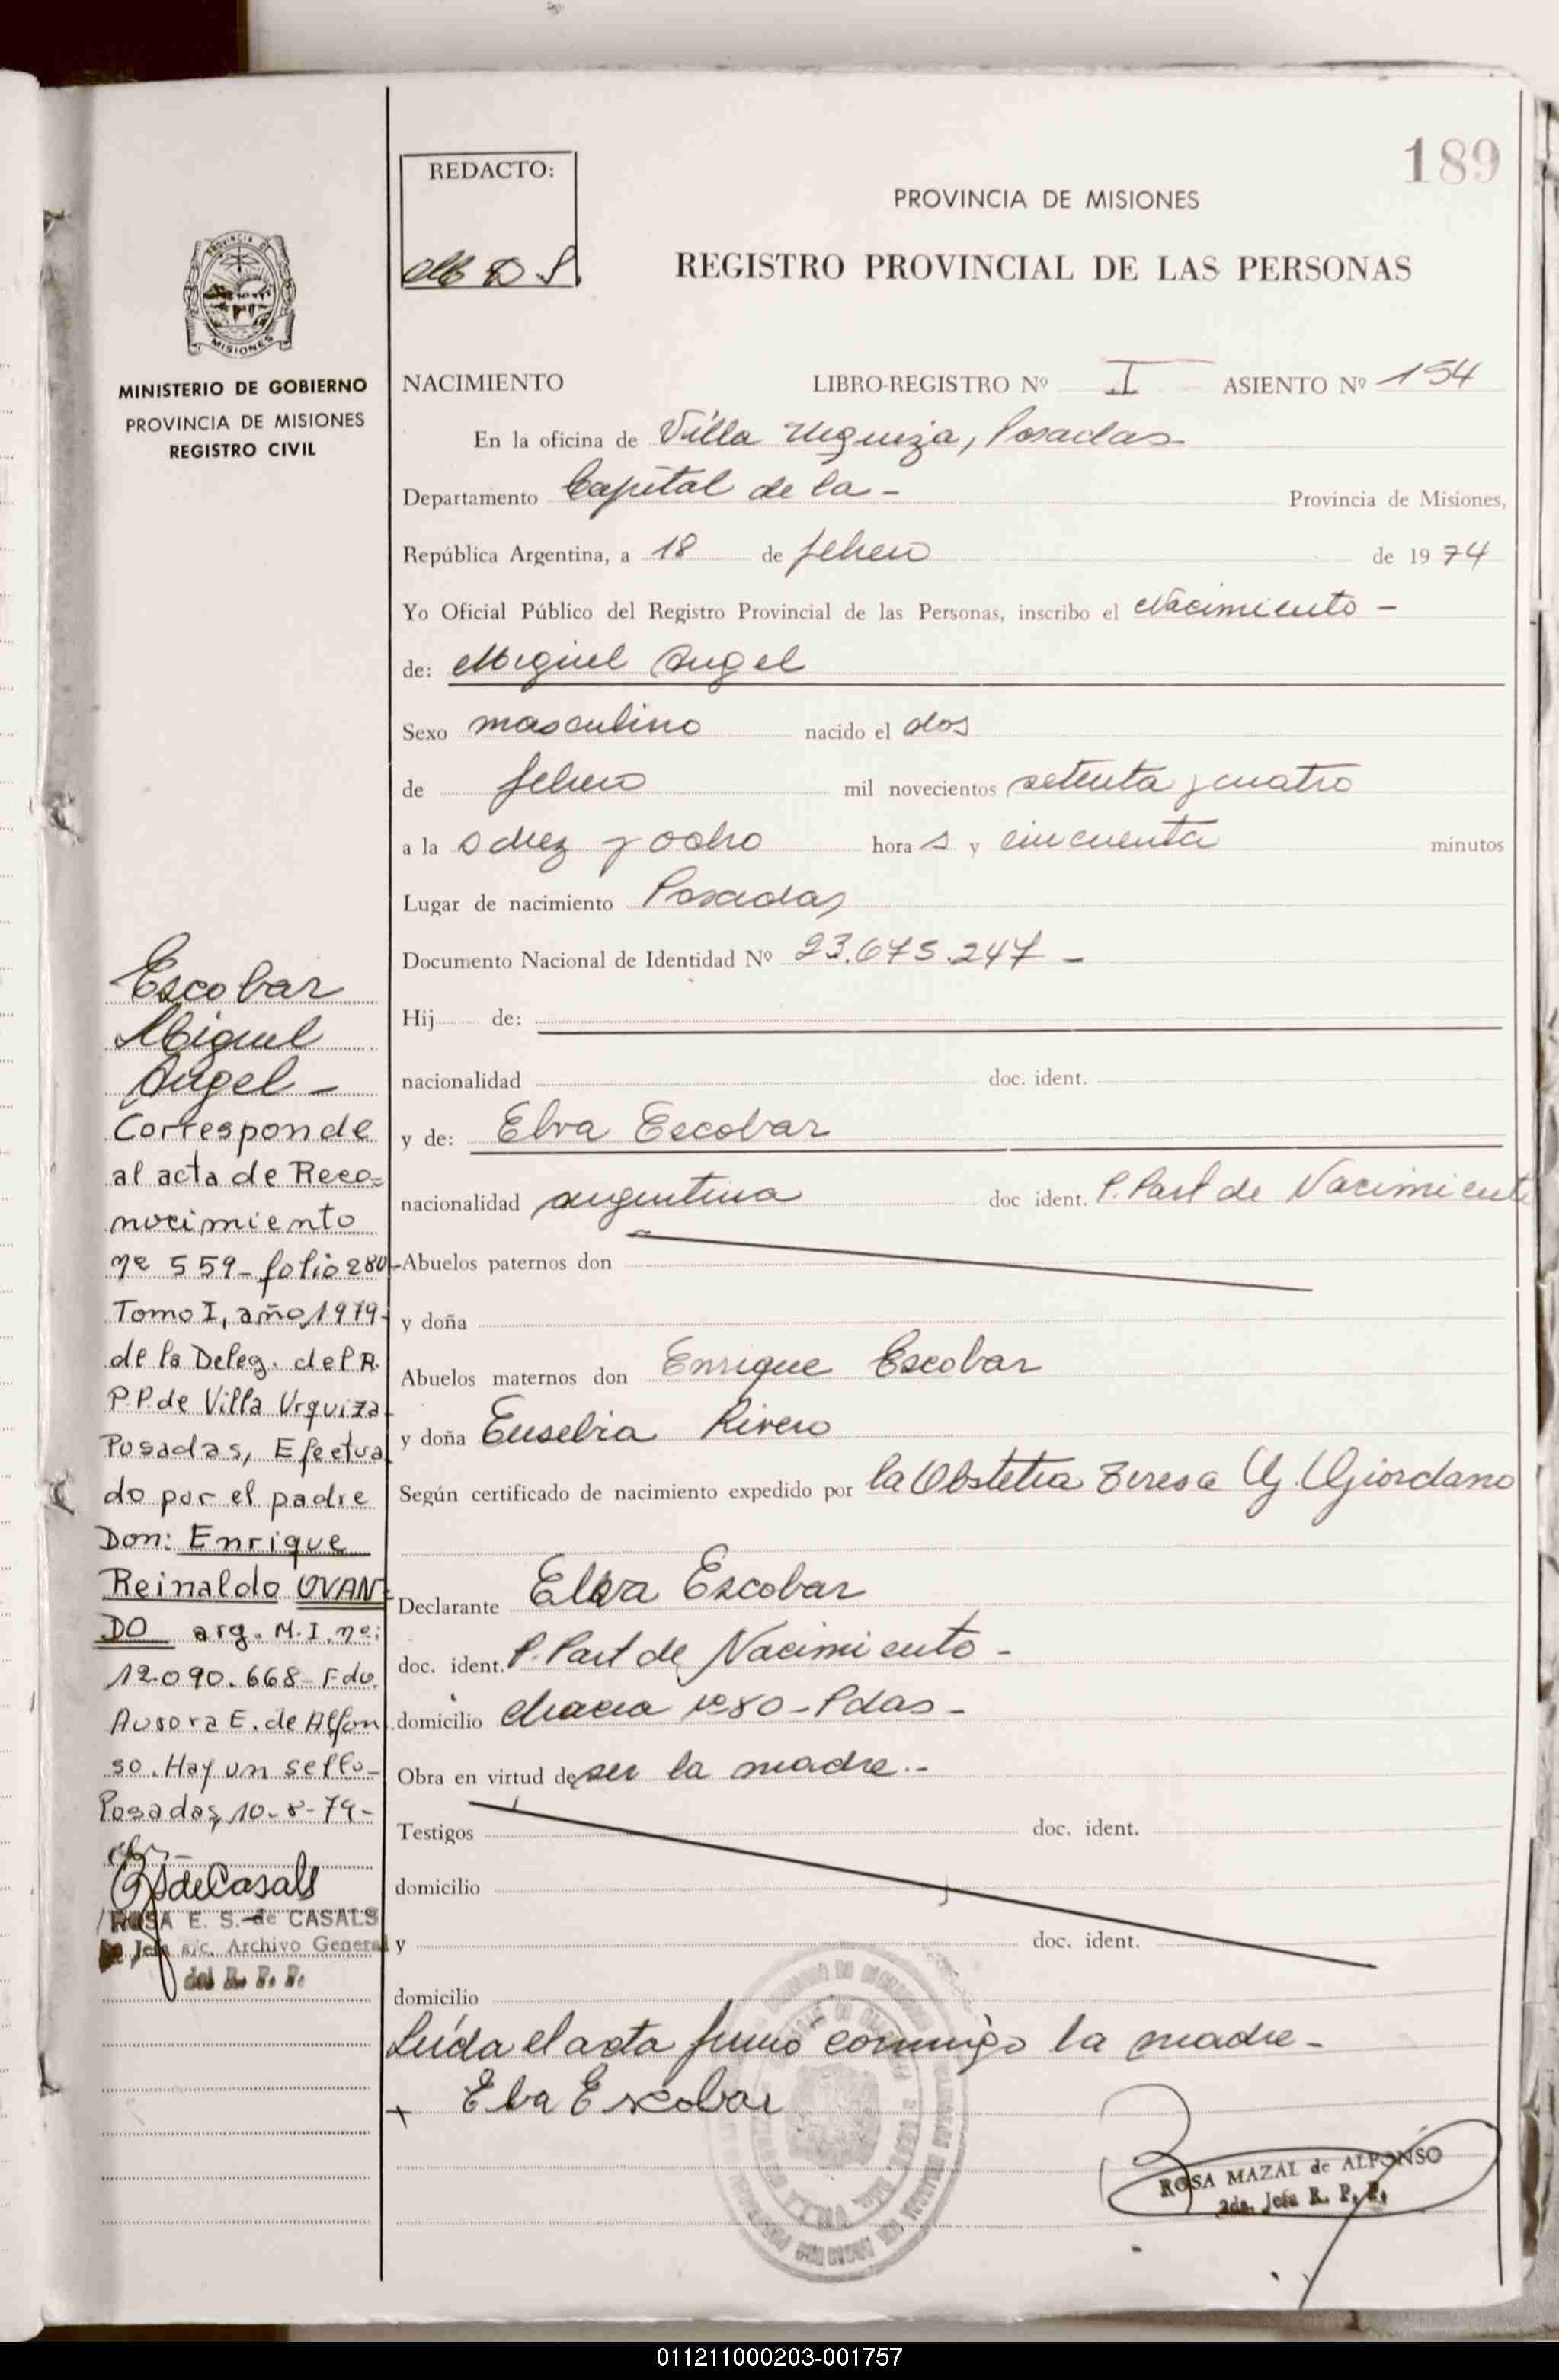 189
REDACTO:
PROVINCIA DE MISIONES
REGISTRO PROVINCIAL DE LAS PERSONAS
PROVINCIA DE
MISIONES
MINISTERIO DE GOBIERNO
PROVINCIA DE MISIONES
REGISTRO CIVIL
NACIMIENTO LIBRO-REGISTRO Nº I ASIENTO Nº 154
En la oficina de Villa Urquiza, Posadas
Departamento Capital de la - Provincia de Misiones,
República Argentina, a 18 de febrero de 1974
Yo Oficial Público del Registro Provincial de las Personas, inscribo el Nacimiento -
de: Miguel Angel
Sexo masculino nacido el dos
de febrero mil novecientos setenta y cuatro
a la s diez y ocho hora s y cincuenta minutos
Lugar de nacimiento Posadas
Documento Nacional de Identidad Nº 23.675.247 -
Hij de:
nacionalidad doc. ident.
y de: Elva Escobar
nacionalidad argentina doc ident. P. Part de Nacimiento
Abuelos paternos don
y doña
Abuelos maternos don Enrique Escobar
y doña Eusebia Rivero
Según certificado de nacimiento expedido por la Obstetra Teresa G. Giordano
Declarante Elva Escobar
doc. ident. P. Part de Nacimiento -
domicilio Chacra 80 - Pdas -
Obra en virtud de ser la madre.-
Testigos doc. ident.
domicilio
y doc. ident.
domicilio
Leída el acta firmó conmigo la madre -
x Elva Escobar
ROSA MAZAL de ALFONSO
2da. Jefa R. P. P.
Escobar
Miguel
Angel -
Corresponde
al acta de Reco=
nocimiento
nº 559 - folio 280-
Tomo I, año 1979-
de la Deleg. del R.
P.P. de Villa Urquiza
Posadas, Efectua
do por el padre
Don: Enrique
Reinaldo OVAN=
DO arg. M.I. nº:
12.090.668 - Fdo.
Aurora E. de Alfon
so. Hay un sello-
Posadas, 10-8-79-
ROSA E. S. de CASALS
Jefa a/c. Archivo General
del R. P. P.
011211000203-001757